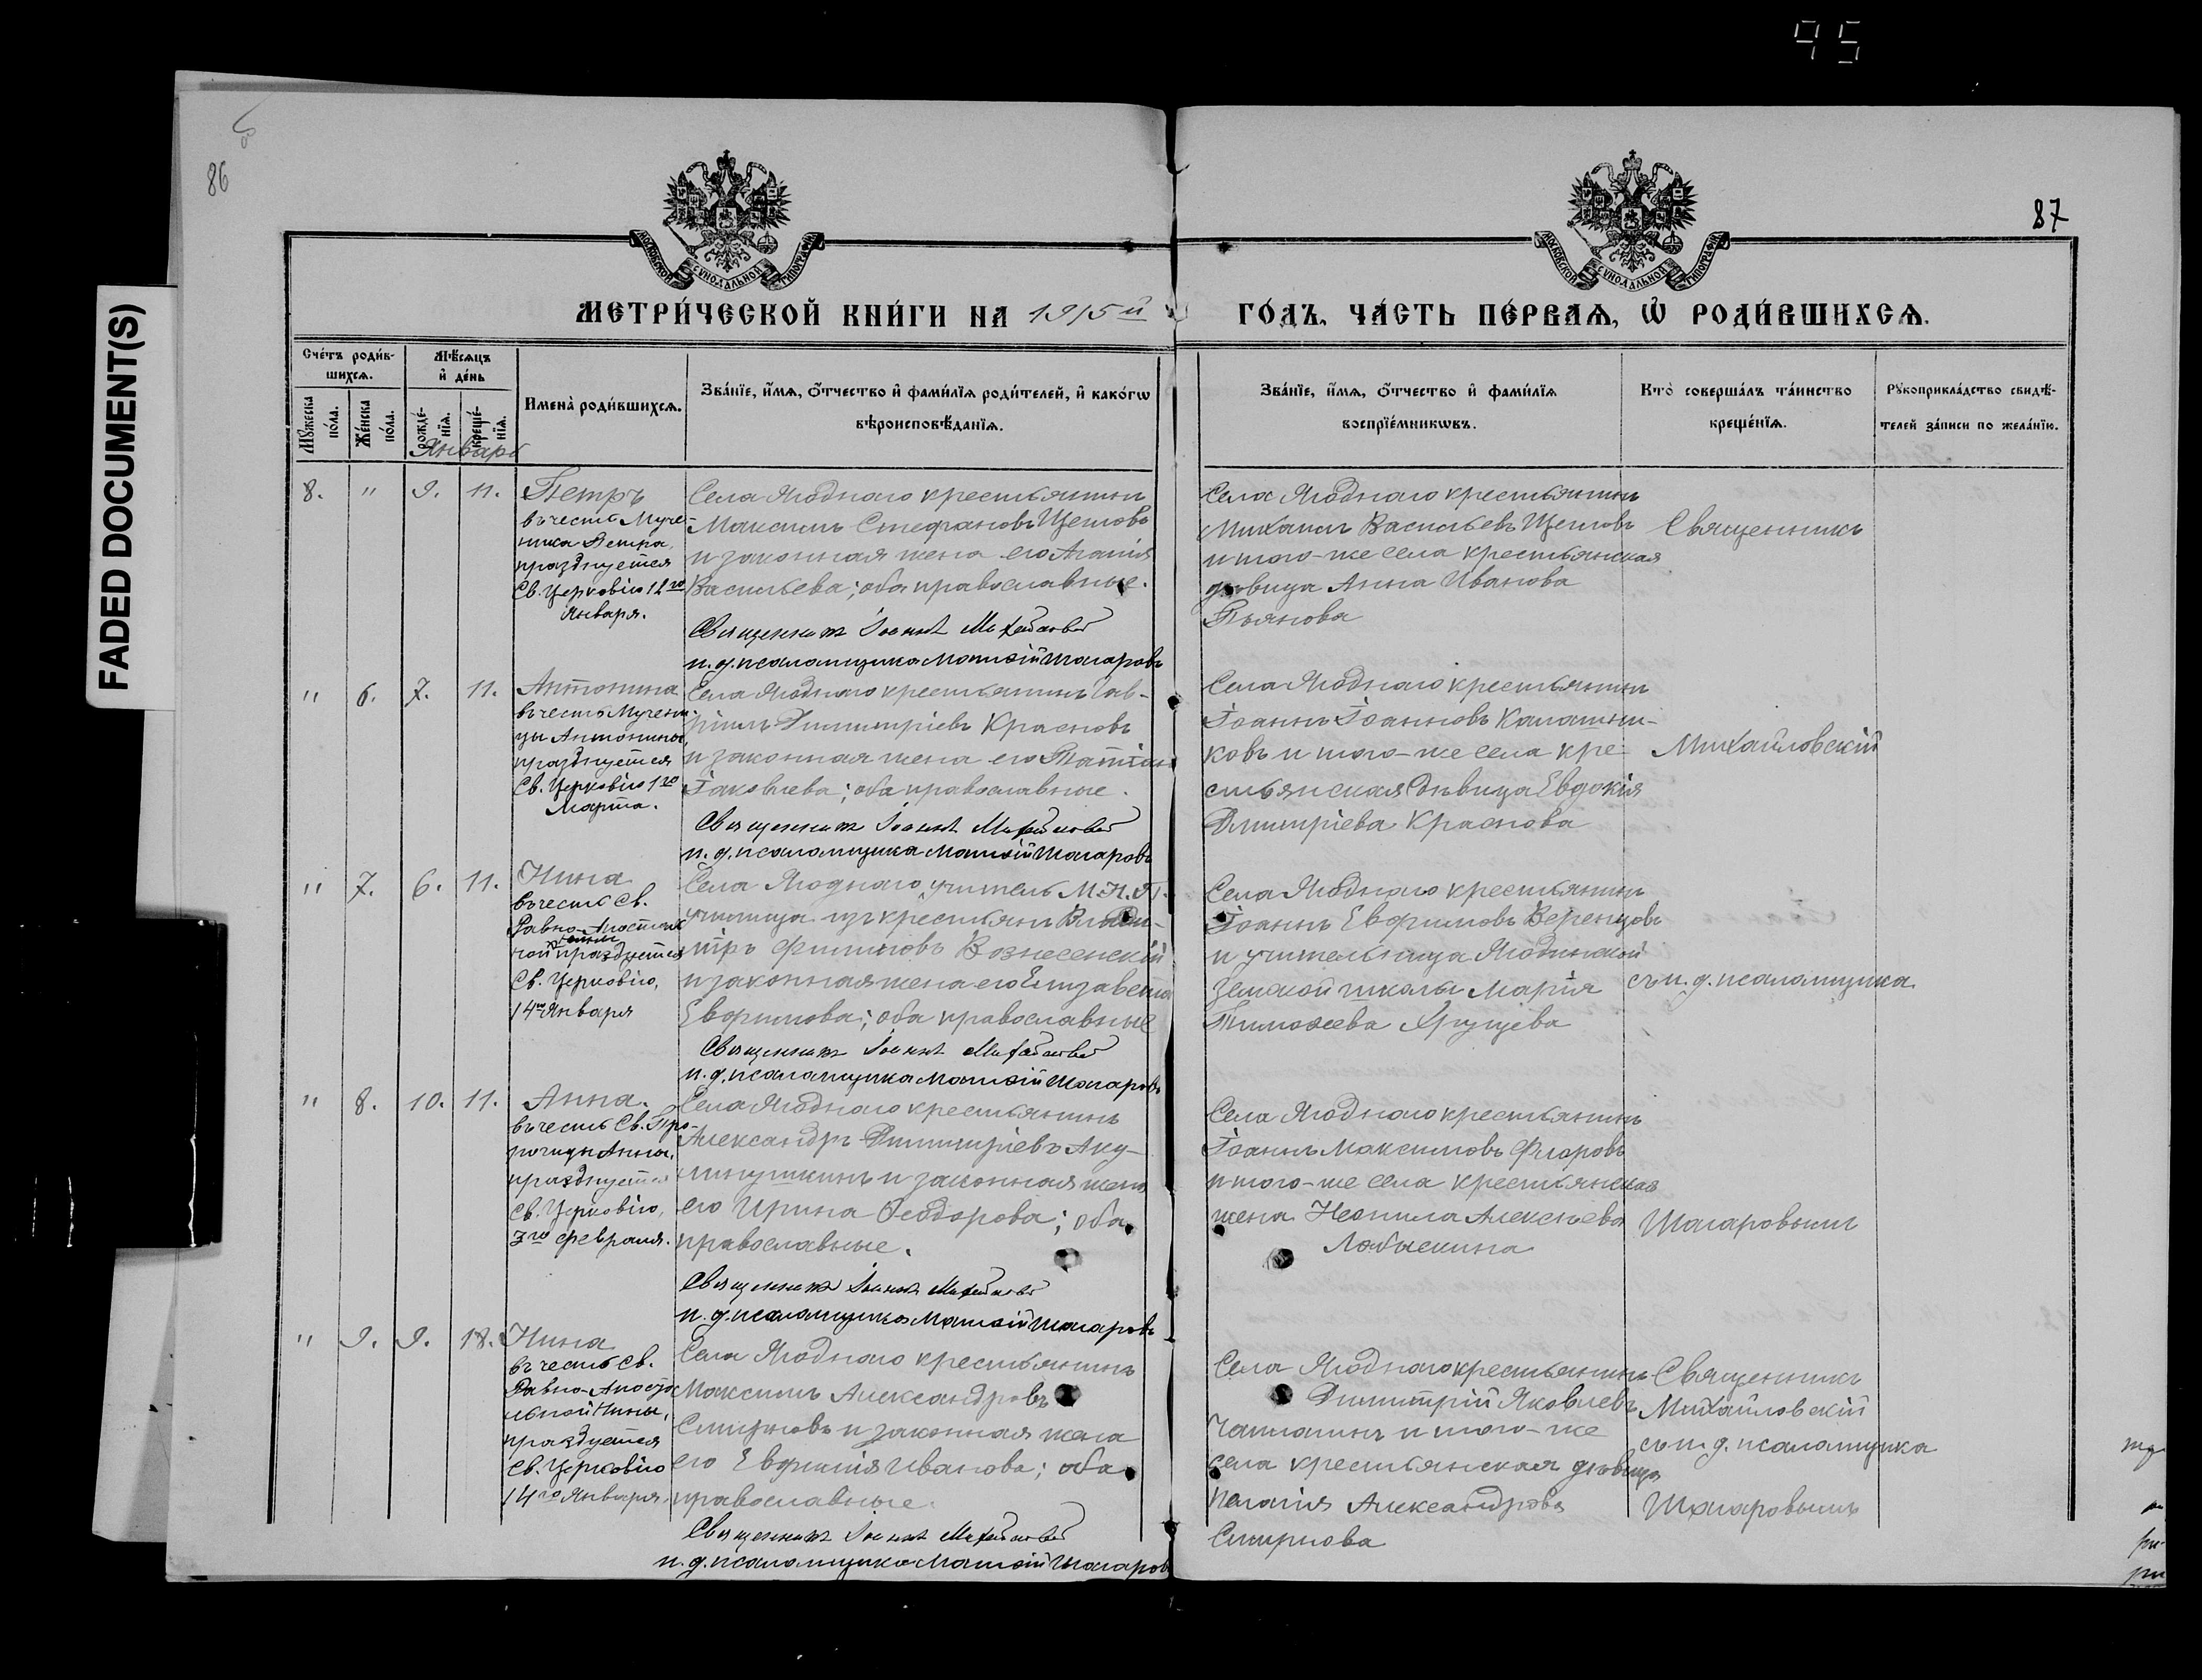 95
86
87
FADED DOCUMENT(S)
МОСКОВСКОЙ СѴНОДАЛЬНОЙ ТИПОГРАФІИ
МОСКОВСКОЙ СѴНОДАЛЬНОЙ ТИПОГРАФІИ
МЕТРИ́ЧЕСКОЙ КНИ́ГИ НА 1915й
ГО́ДЪ, ЧА́СТЬ ПЕ́РВАѦ, Ѡ҆ РОДИ́ВШИХСѦ.
Сче́тъ роди́в-
шихсѧ.
Мꙋ́жеска по́ла.
Же́нска по́ла.
Мѣ́сѧцъ
и҆ де́нь
рожде́-нїѧ.
креще́-нїѧ.
Январь
Имена̀ роди́вшихсѧ.
Зва́нїе, и҆́мѧ, ѻ҆́тчество и҆ фами́лїѧ роди́телей, и҆ како́гѡ
вѣроисповѣ́данїѧ.
Зва́нїе, и҆́мѧ, ѻ҆́тчество и҆ фами́лїѧ
воспрїе́мникѡвъ.
Кто̀ соверша́лъ та́инство
креще́нїѧ.
Рꙋкоприкла́дство свидѣ́-
телей за́писи по жела́нїю.
8. " 9. 11.
Петръ
въ честь Муче-
ника Петра,
празднуется
Св. Церковію 12го
Января.
Села Ягоднаго крестьянинъ
Максимъ Стефановъ Щегловъ
и законная жена его Агапія
Васильева; оба православные.
Священникъ Іоаннъ Михайловскій
и. д. псаломщика Матѳій Шагаровъ
Села Ягоднаго крестьянинъ
Михаилъ Васильевъ Щегловъ
и того-же села крестьянская
дѣвица Анна Иванова
Пьянова
Священникъ
" 6. 7. 11.
Антонина
въ честь Мучени-
цы Антонины
празднуется
Св. Церковію 1го
Марта.
Села Ягоднаго крестьянинъ Гав-
ріилъ Димитріевъ Красновъ
и законная жена его Татіана
Іаковлева; оба православные.
Священникъ Іоаннъ Михайловскій
и. д. псаломщика Матѳій Шагаровъ
Села Ягоднаго крестьянинъ
Іоаннъ Іоанновъ Калашни-
ковъ и того-же села кре-
стьянская дѣвица Евдокія
Димитріева Краснова
Михайловскій
" 7. 6. 11.
Нина
въ честь Св.
Равно-Апостоль-
ной Нины празднуется
Св. Церковію,
14го Января
Села Ягоднаго, учитель М.Н.П.
училища изъ крестьянъ
Филиповъ Вознесенскій
и законная жена его Елизавета
Евфимова; оба православные
Священникъ Іоаннъ Михайловскій
и. д. псаломщика Матѳій Шагаровъ
Села Ягоднаго крестьянинъ
Іоаннъ Евфимовъ Веренцовъ
и учительница Ягодинской
земской школы Марія
Тимоѳеева Хрущева
съ и. д. псаломщика
" 8. 10. 11.
Анна.
въ честь Св. Про-
рочицы Анны,
празднуется
Св. Церковію,
3го февраля.
Села Ягоднаго крестьянинъ
Александръ Димитріевъ Аку-
линушкинъ и законная жена
его Ирина Ѳеодорова; оба
православные.
Священникъ Іоаннъ Михайловскій
и. д. псаломщика Матѳій Шагаровъ
Села Ягоднаго крестьянинъ
Іоаннъ Максимовъ Флоровъ
и того-же села крестьянская
жена Неонила Алексѣева
Шагаровымъ
" 9. 9. 18.
Нина
въ честь Св.
Равно-Апосто-
льной Нины,
празднуется
Св. Церковію
14го Января.
Села Ягоднаго крестьянинъ
Максимъ Александровъ
Смирновъ и законная жена
его Евфимія Иванова; оба
православные.
Священникъ Іоаннъ Михайловскій
и. д. псаломщика Матѳій Шагаровъ
Села Ягоднаго крестьянинъ
Димитрій Яковлевъ
и того-же
села крестьянская дѣвица
Пелагія Александрова
Смирнова
Священникъ
Михайловскій
съ и. д. псаломщика
Шагаровымъ